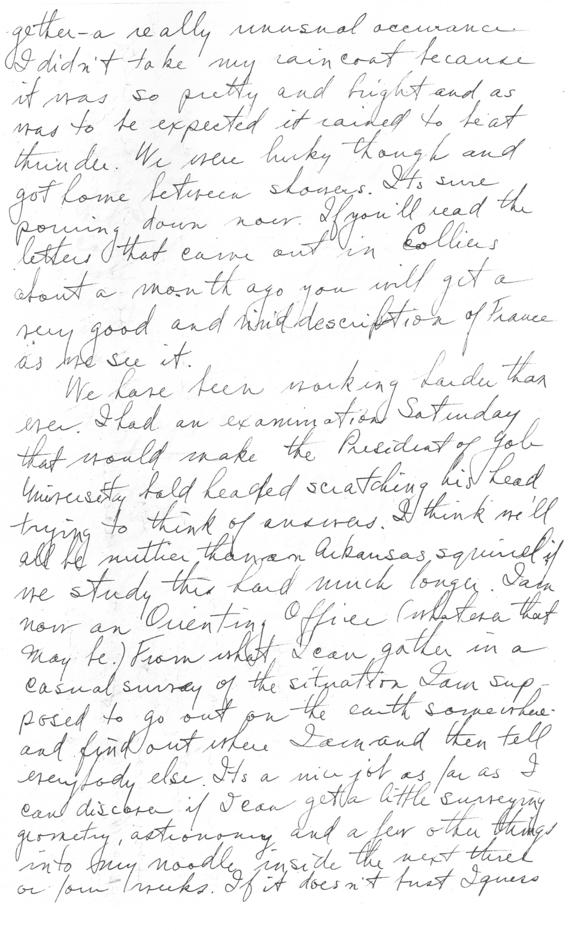 gether - a really unusual occurance
I didn't take my raincoat because
it was so pretty and bright and as
was to be expected it rained to beat
thunder. We were lucky though and
got home between showers. Its sure
pouring down now. If you'll read the
letters that came out in Colliers
about a month ago you will get a
very good and vivid description of France
as we see it.
We have been working harder than
ever. I had an examination Saturday
that would make the President of Yale
University bald headed scratching his head
trying to think of answers. I think we'll
all be nuttier than an Arkansas squirrel if
we study this hard much longer. I am
now an Orienting Officer (whatever that
may be.) From what I can gather in a
casual survey of the situation I am sup-
posed to go out on the earth somewhere
and find out where I am and then tell
everybody else. Its a nice job as far as I
can discover if I can get a little surveying
geometry, astronomy and a few other things
into my noodle inside the next three
or four weeks. If it doesn't bust I guess